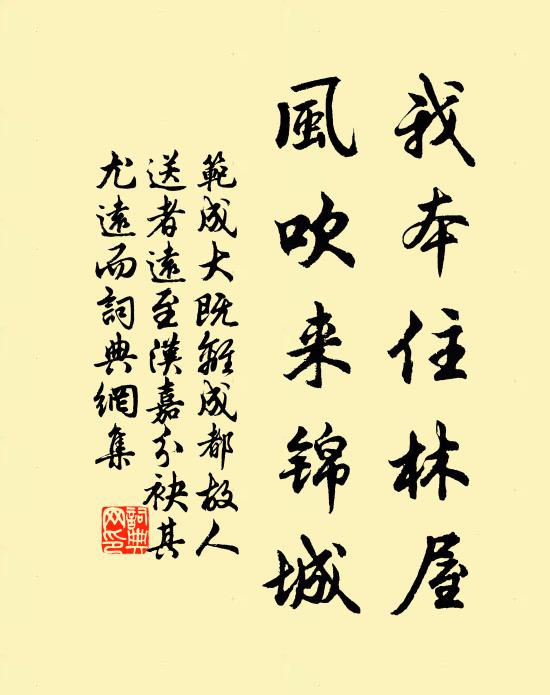 我本住林屋
風吹来錦城
範成大既離成都故人
送者遠至漢嘉分袂其
尤遠而詞典網集
詞典網印